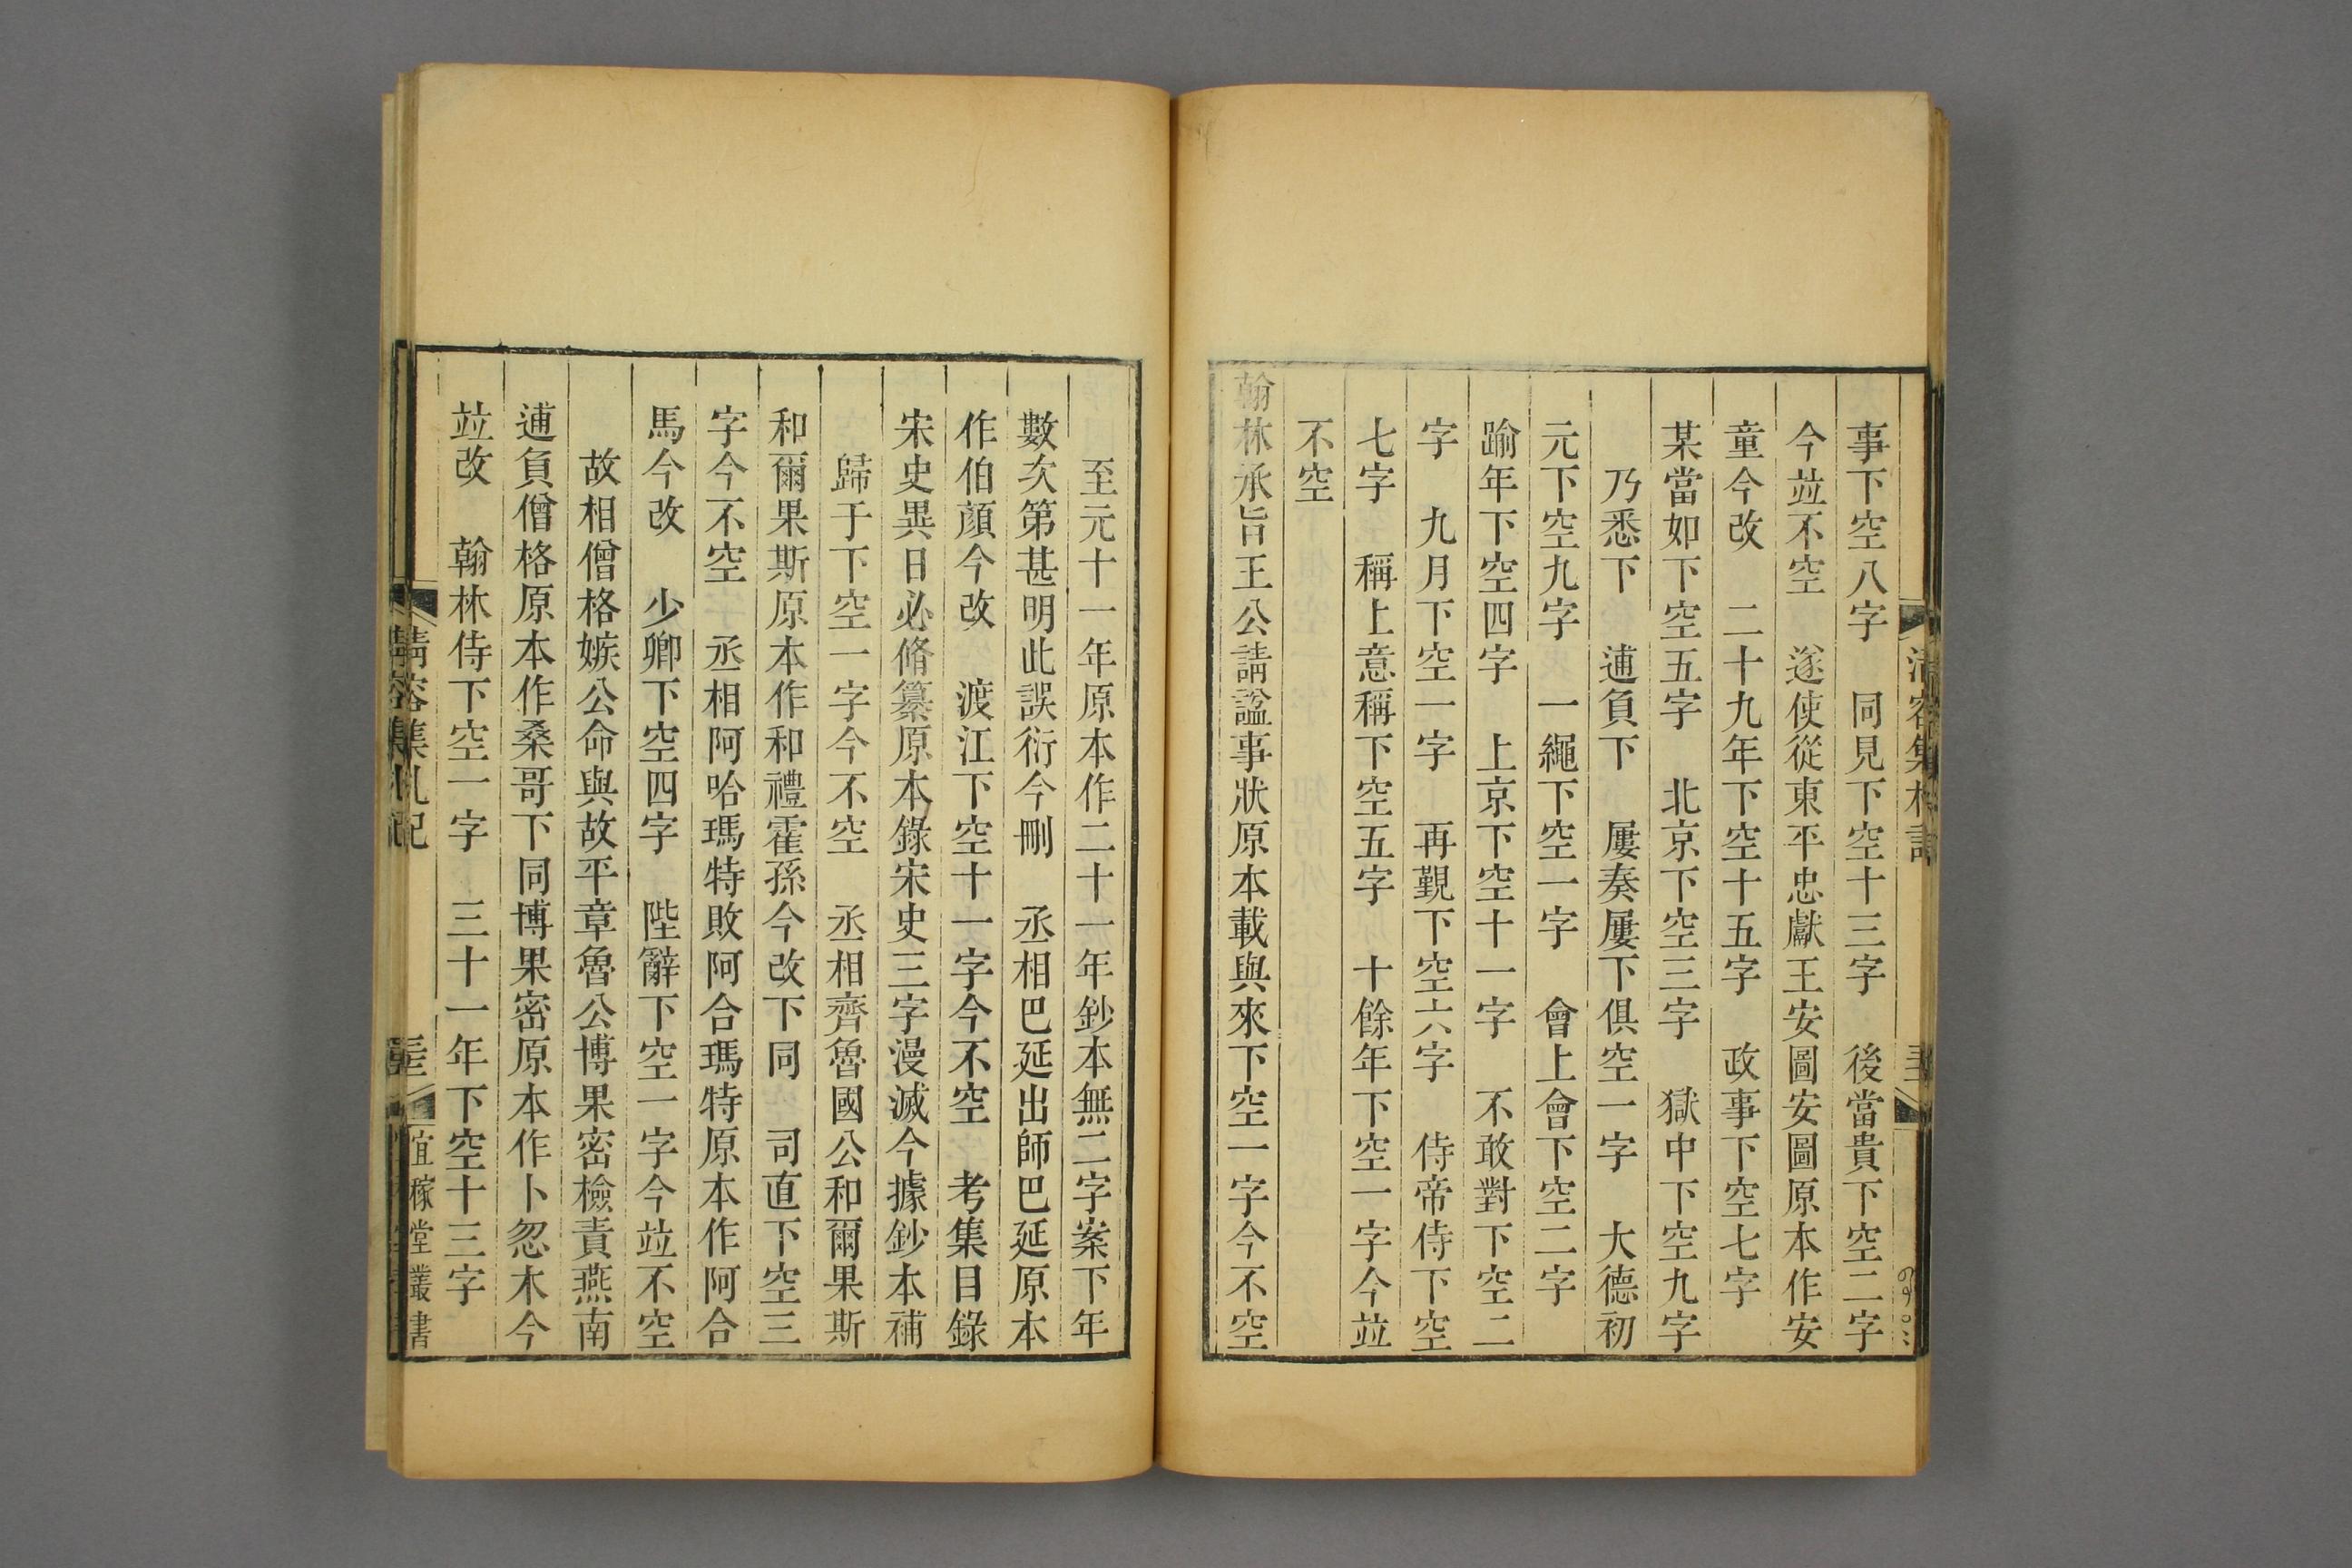 事下空八字　同見下空十三字　後當貴下空二字
今竝不空　遂使從東平忠獻王安圖安圖原本作安
童今改　二十九年下空十五字　政事下空七字
某當如下空五字　北京下空三字　獄中下空九字
乃悉下　逋負下　屢奏屢下俱空一字　大德初
元下空九字　一繩下空一字　會上會下空二字
踰年下空四字　上京下空十一字　不敢對下空二
字　九月下空一字　再觀下空六字　侍帝侍下空
七字　稱上意稱下空五字　十餘年下空一字今竝
不空
翰林承旨王公請謚事狀原本載與來下空一字今不空
至元十一年原本作二十一年鈔本無二字案下年
數次第甚明此誤衍今刪　丞相巴延出師巴延原本
作伯顏今改　渡江下空十一字今不空　考集目錄
宋史異日必脩纂原本錄宋史三字漫滅今據鈔本補
歸于下空一字今不空　丞相齊魯國公和爾果斯
和爾果斯原本作和禮霍孫今改下同　司直下空三
字今不空　丞相阿哈瑪特敗阿合瑪特原本作阿合
馬今改　少卿下空四字　陛辭下空一字今竝不空
故相僧格嫉公命與故平章魯公博果密檢責燕南
逋負僧格原本作桑哥下同博果密原本作卜忽木今
竝改　翰林侍下空一字　三十一年下空十三字
清容集札記
宜稼堂叢書